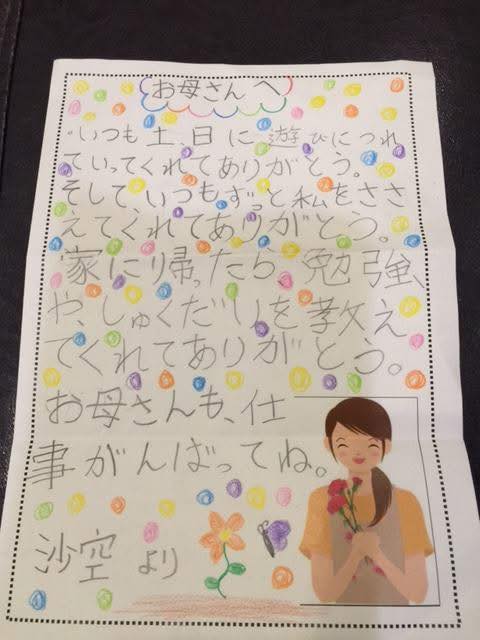 お母さんへ
いつも土、日に遊びにつれ
ていってくれてありがとう。
そして、いつもずっと私をささ
えてくれてありがとう。
家に帰ったら、勉強
や、しゅくだいを教え
てくれてありがとう。
お母さんも、仕
事がんばってね。
沙空より